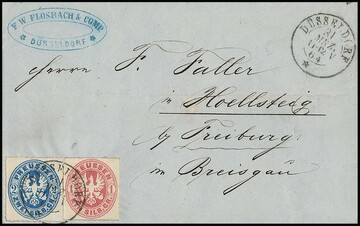 F. W. FLOSBACH & COMP.
DÜSSELDORF
DÜSSELDORF
Herrn F. Faller
in Hoellsteig
by Freiburg
in Breisgau
PREUSSEN
ZWEI SILB. GR.
PREUSSEN
1 SILB. GR.